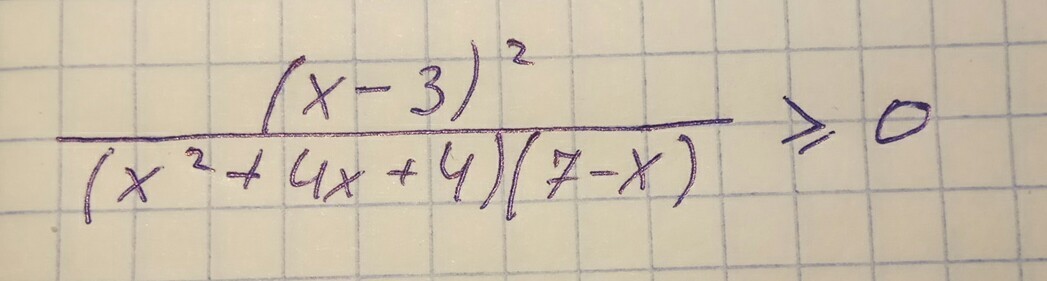 (x-3)²
(x²+4x+4)(7-x)
⩾ 0